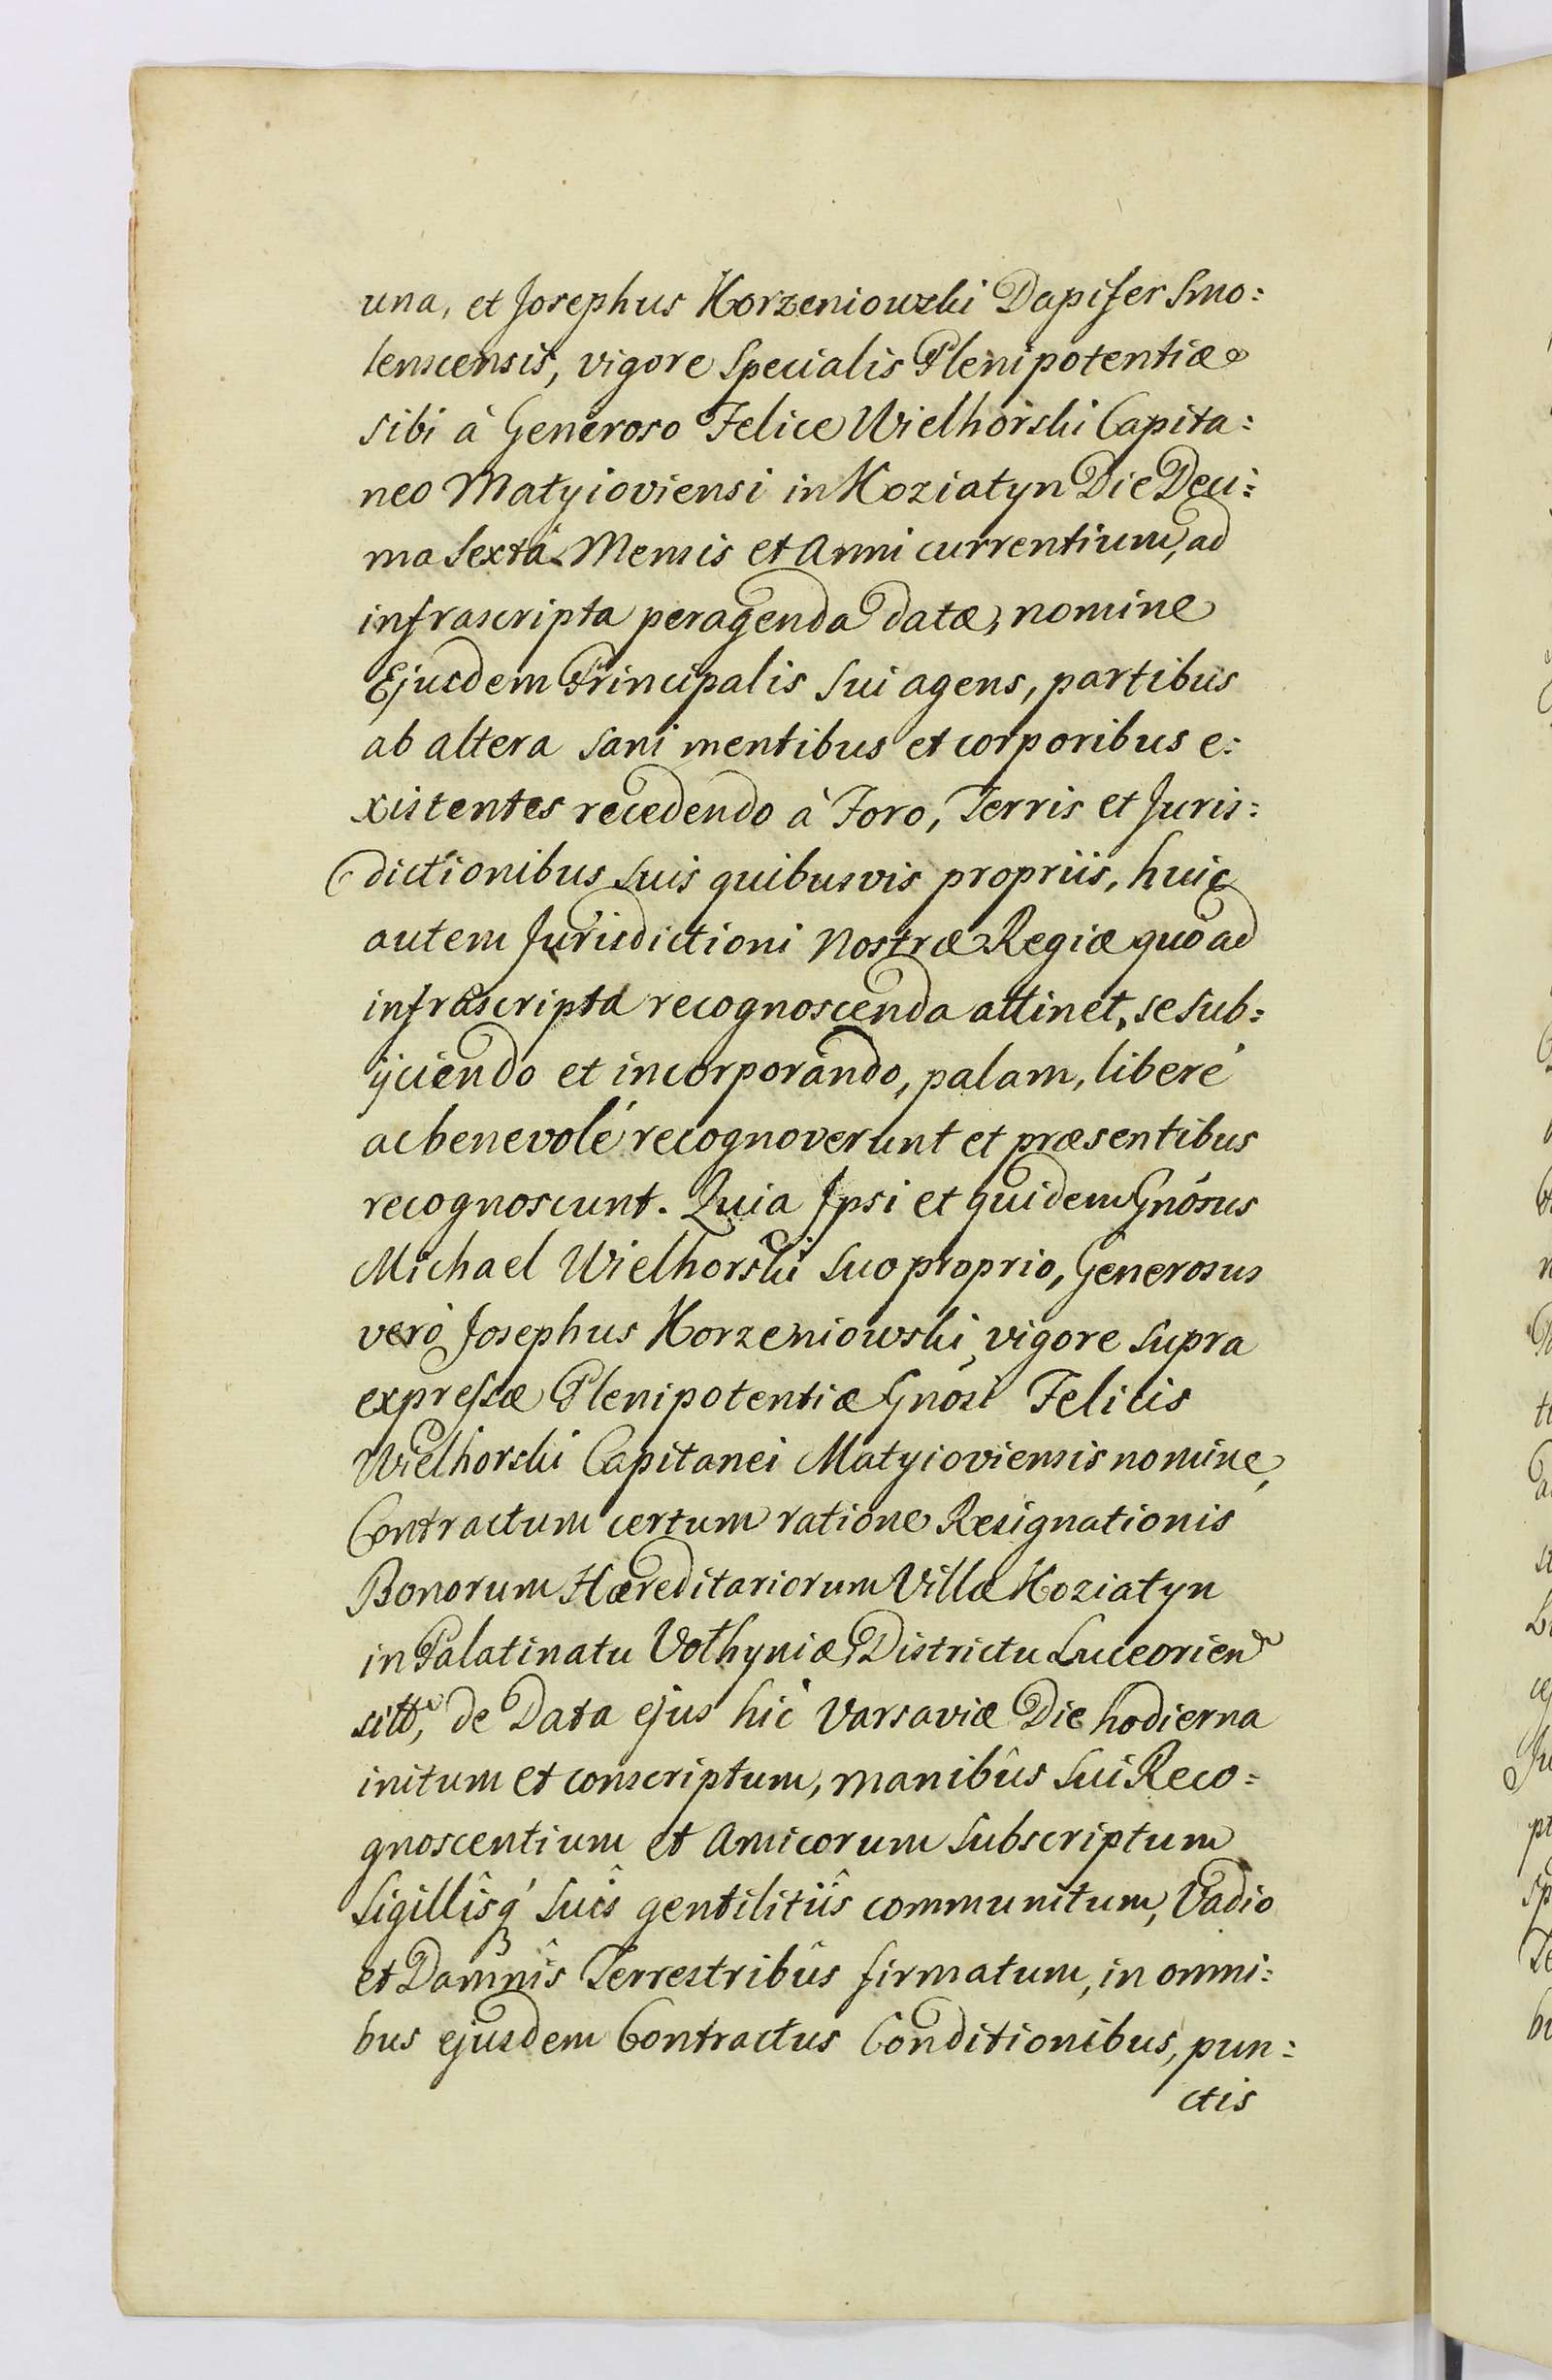 una, et Josephus Korzeniowski Dapifer Smo:
lenscensis, vigore Specialis Plenipotentiæ
sibi à Generoso Felice Wielhorski Capita:
neo Matyioviensi in Koziatyn Die Deci:
ma Sexta Mensis et Anni currentium, ad
infrascripta peragenda datæ, nomine
Ejusdem Principalis Sui agens, partibus
ab altera Sani mentibus et corporibus e:
xistentes recedendo à Foro, Terris et Juris:
dictionibus Suis quibusvis propriis, huic
autem Jurisdictioni Nostræ Regiæ quò ad
infrascripta recognoscenda attinet, se sub:
ijciendo et incorporando, palam, liberé
ac benevolé recognoverunt et præsentibus
recognoscunt. Quia Ipsi et quidem Gnósus
Michael Wielhorski Suo proprio, Generosus
verò Josephus Korzeniowski, vigore Supra
expressæ Plenipotentiæ Gnósi Felicis
Wielhorski Capitanei Matyioviensis nomine,
Contractum certum ratione Resignationis
Bonorum Hæreditariorum Villæ Koziatyn
in Palatinatu Volhyniæ, Districtu Luceorien
sitt, de Data ejus hic Varsaviæ Die hodierna
initum et conscriptum, manibûs Sui Reco=
gnoscentium et Amicorum Subscriptum
Sigillîsq́ Suis gentilitiîs communitum, Vadio
et Damnîs Terrestribûs firmatum, in omni:
bus ejusdem Contractus Conditionibus, pun:
ctis